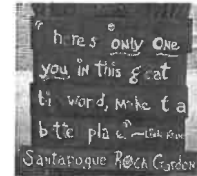 "heres only one
you in this g eat
ti word, make t a
bette place"~
Santapogue Rock Garden